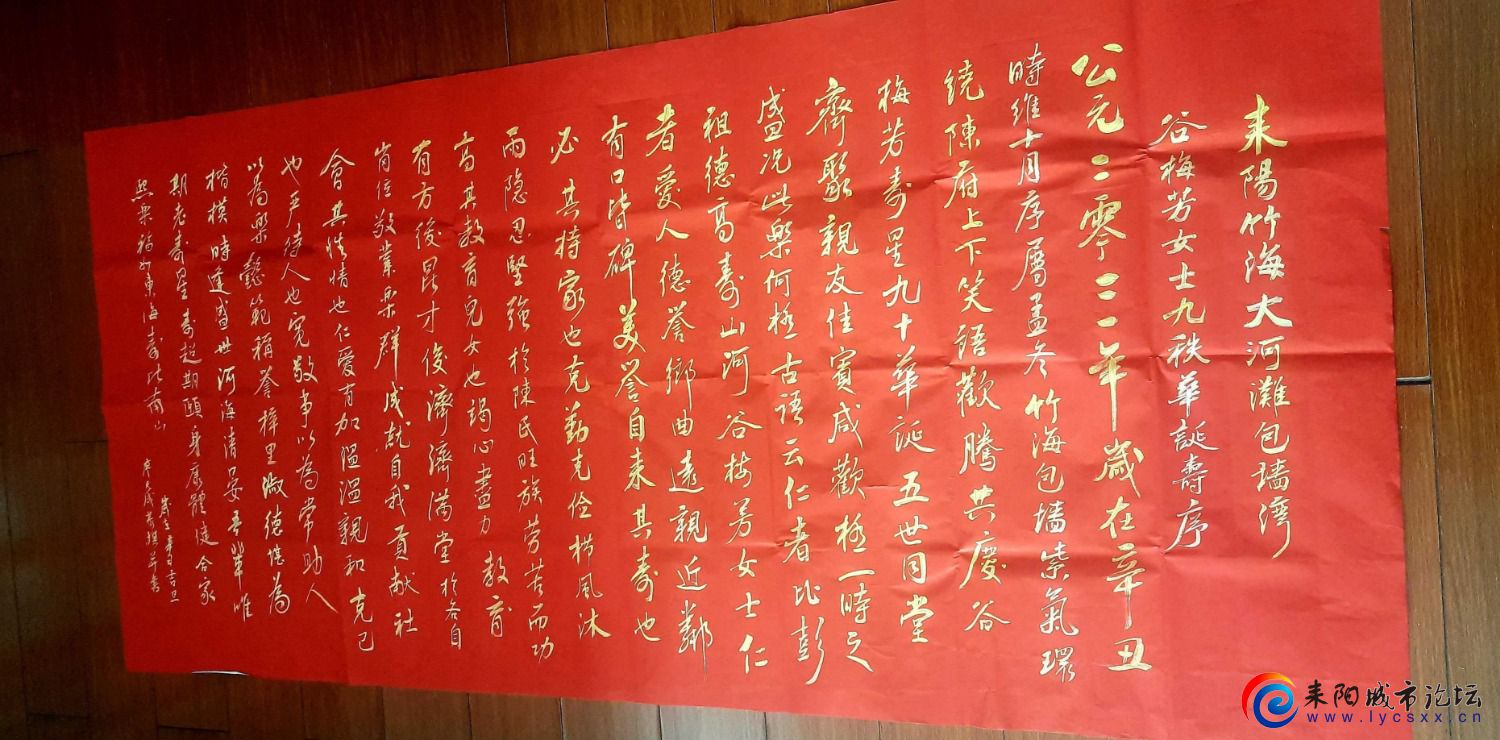 耒陽竹海大河灘包墻湾
谷梅芳女士九秩華誕壽序
公元二零二一年歲在辛丑
時維十月序屬孟冬竹海包墻紫氣環
繞陳府上下笑語歡騰共慶谷
梅芳寿星九十華誕五世同堂
齊聚親友佳賓咸歡極一時之
盛况此樂何極古語云仁者比彭
祖德高寿山河谷梅芳女士仁
者愛人德誉鄉曲遠親近鄰
有口皆碑美誉自来其寿也
必其持家也克勤克俭栉風沐
雨隐忍堅強於陳氏旺族劳苦而功
高其教育兒女也竭心盡力教育
有方後昆才俊濟濟满堂於各自
岗位敬業樂群成就自我貢献社
會其性情也仁爱有加温温親和克己
也严待人也宽敬事以為常助人
以為樂懿範稱誉梓里淑德堪為
楷模時逢盛世河海清晏吾辈唯
期老寿星寿超期頤身康體健合家
熙樂福如東海寿比南山
歲在辛丑吉旦
耒阳城市论坛
www.lycsxx.cn